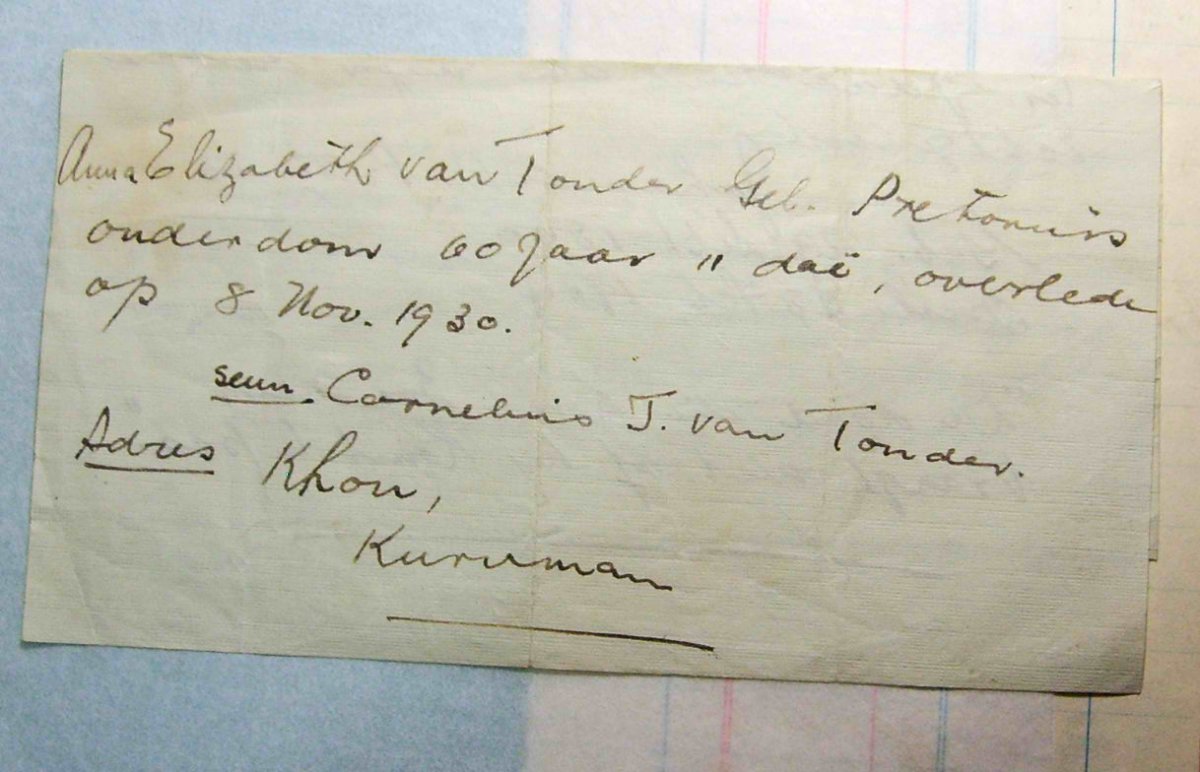 Anna Elizabeth van Tonder Geb. Pretorius
ouderdom 60 jaar 11 daë, overlede
op 8 Nov. 1930.
seun. Cornelius J. van Tonder.
Adres Khou,
Kuruman